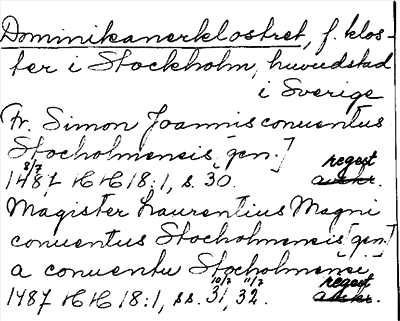 Dominikanerklostret, f. klos-
ter i Stockholm, huvudstad
i Sverige
Fr. Simon Joannis conuentus
Stocholmensis [gen.]
1487 8/7 HH 18:1, s. 30. regest
Magister Laurentius Magni
conuentus Stocholmensis [gen.]
a conuentu Stocholmensi
1487 HH 18:1, ss. 31 10/7, 32 11/7. regest